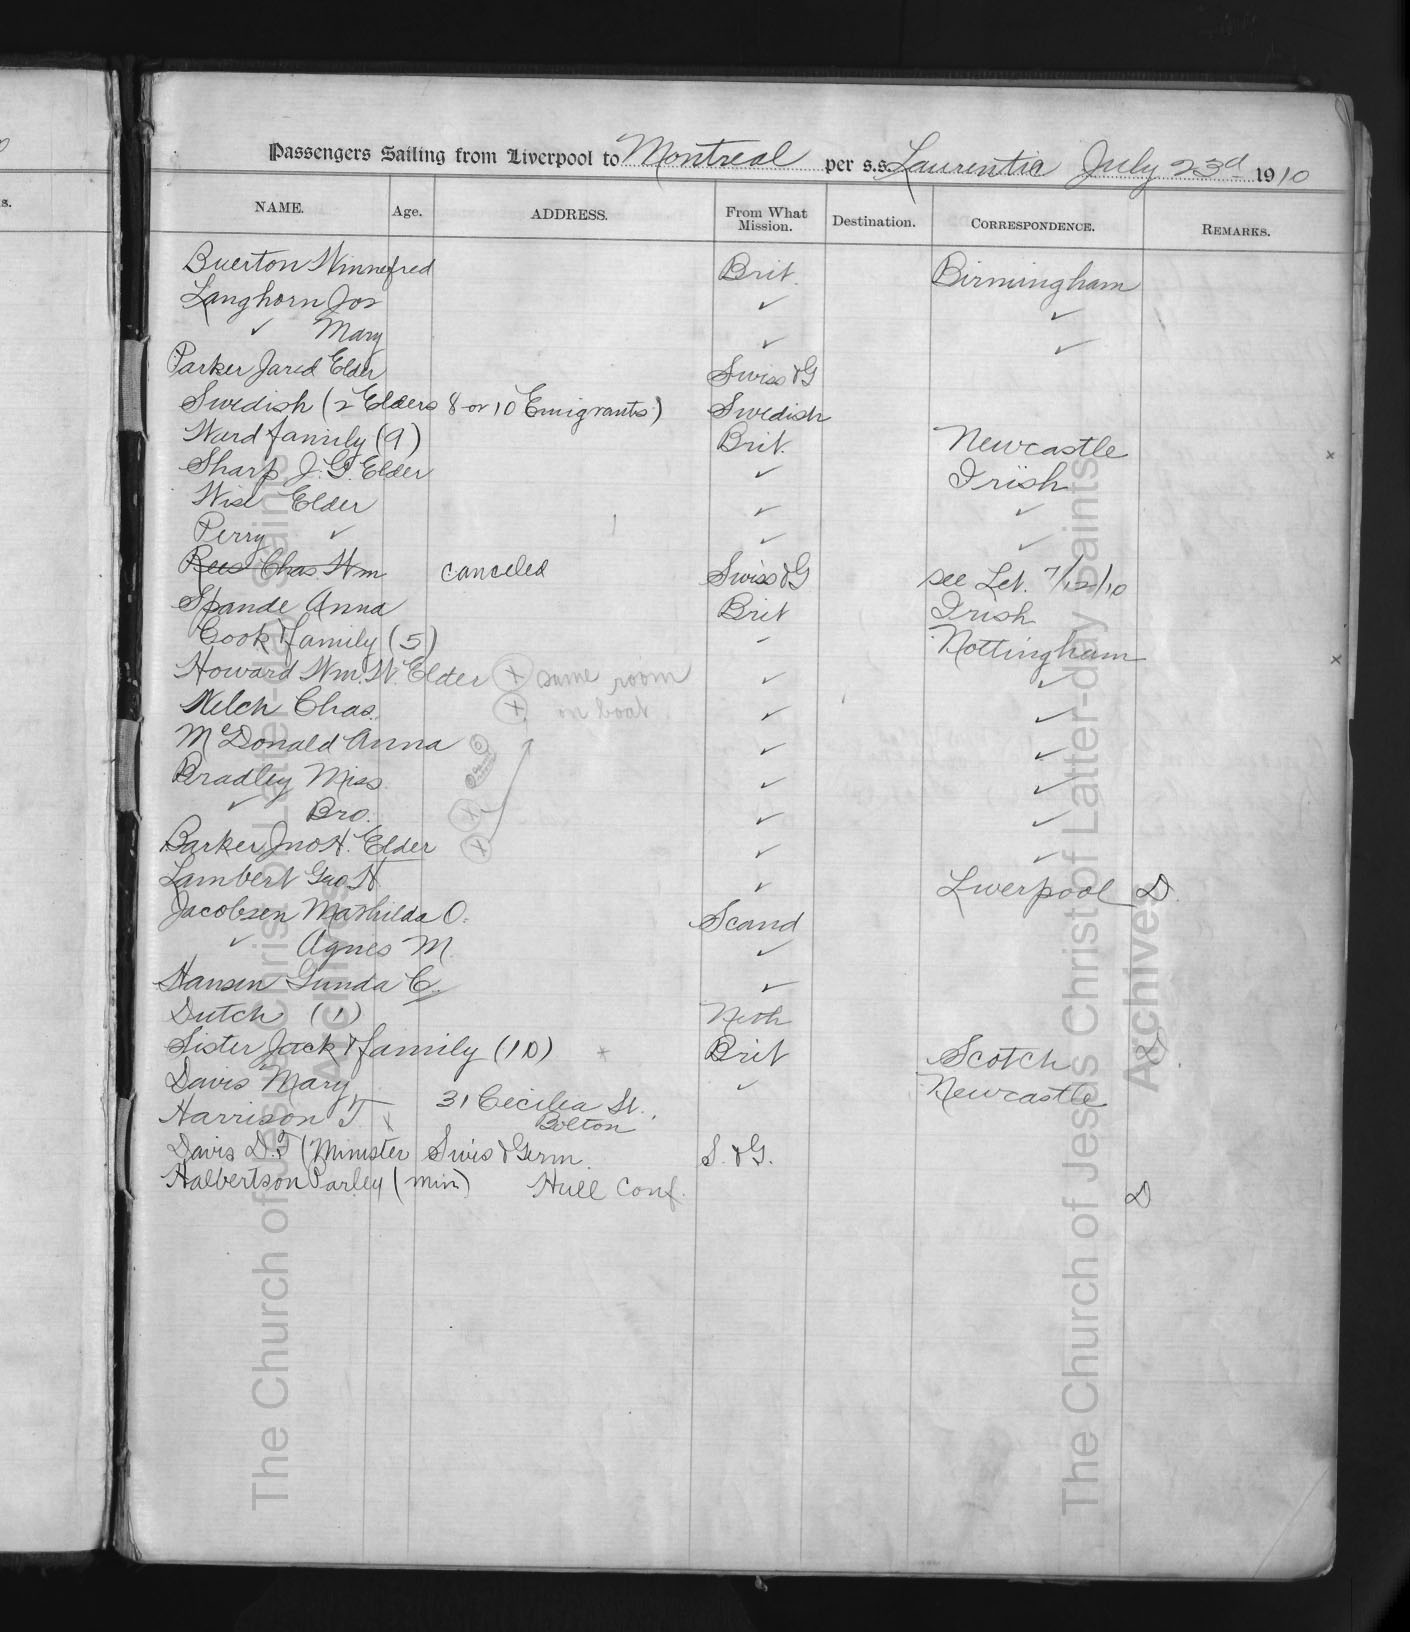 Passengers Sailing from Liverpool to Montreal per s.s. Laurentic July 23d 1910
NAME. Age. ADDRESS. From What Mission. Destination. CORRESPONDENCE. REMARKS.
Buerton Winnefred Brit. Birmingham
Langhorn Jos ✓ ✓
✓ Mary ✓ ✓
Parker Jared Elder Swiss & G
Swedish (2 Elders 8 or 10 Emigrants) Swedish
Ward family (9) Brit. Newcastle x
Sharp J. G. Elder ✓ Irish
Wise Elder ✓ ✓
Perry ✓ ✓ ✓
Rees Chas. Wm canceled Swiss & G see Let. 7/12/10
Spande Anna Brit Irish
Cook & family (5) ✓ Nottingham x
Howard Wm. W. Elder x same room ✓ ✓
Welch Chas. x on boat ✓ ✓
McDonald Anna ✓ ✓
Bradley Miss ✓ ✓
✓ Bro. x ✓ ✓
Barker Jno H. Elder x ✓ ✓
Lambert Geo H ✓ Liverpool D.
Jacobsen Mathilda O. Scand
✓ Agnes M. ✓
Hansen Gunda C. ✓
Dutch (1) Neth
Sister Jack & family (10) x Brit Scotch
Davis Mary ✓ Newcastle
Harrison T x 31 Cecilea St.,
Bolton
Davis D. T (Minister Swis & Germ. S. & G.
Halbertson Parley (min) Hull Conf. D
The Church of Jesus Christ of Latter-day Saints
Archives
The Church of Jesus Christ of Latter-day Saints
Archives